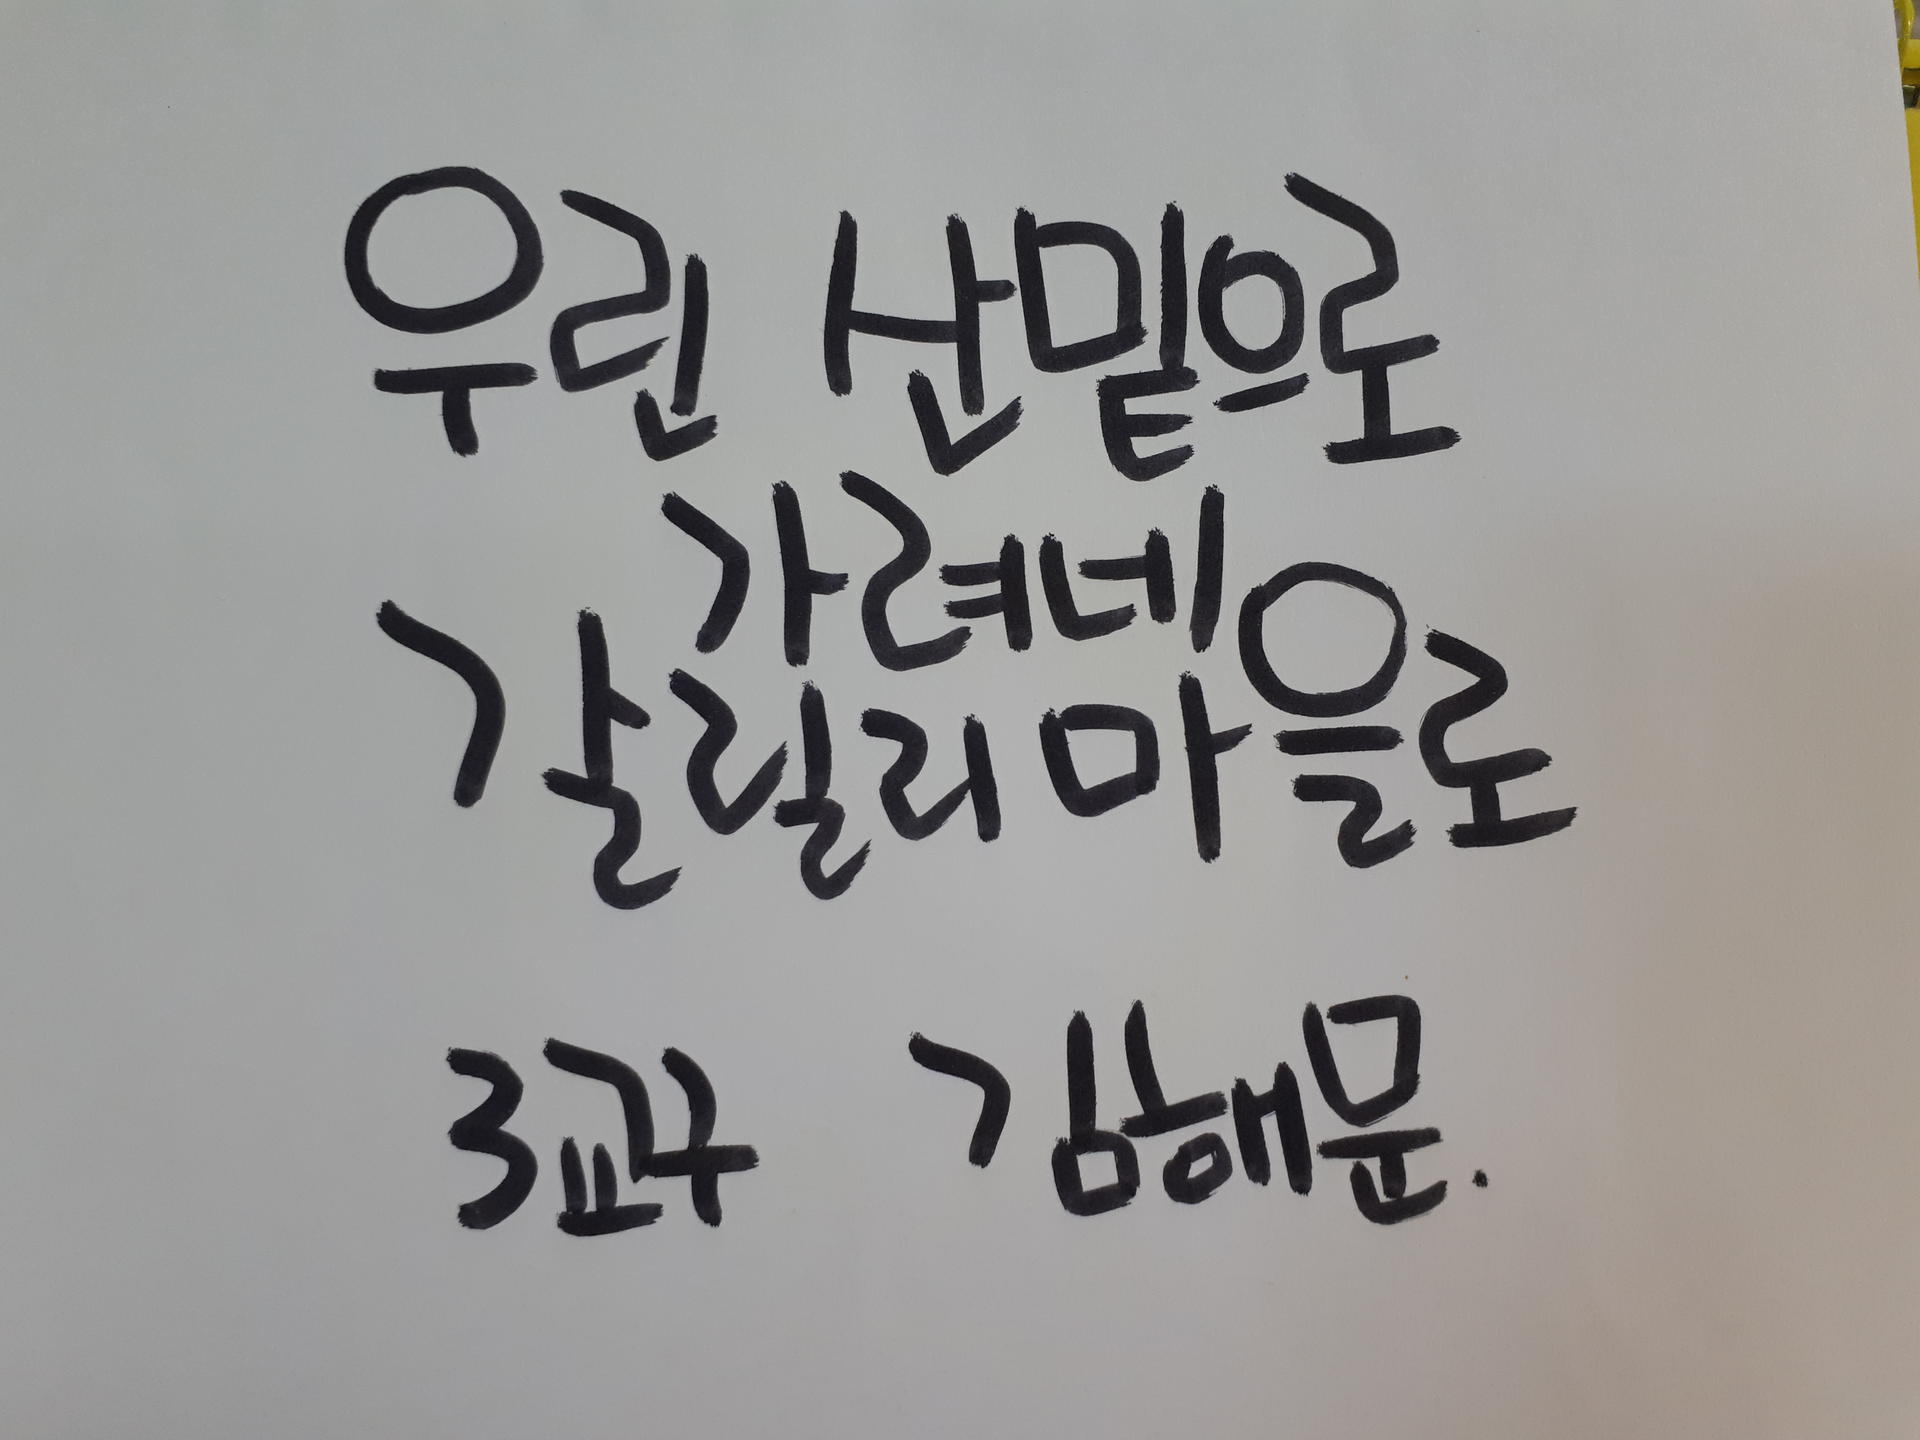 우린 산밑으로
가려네
갈릴리 마을로
3교구 김해문.